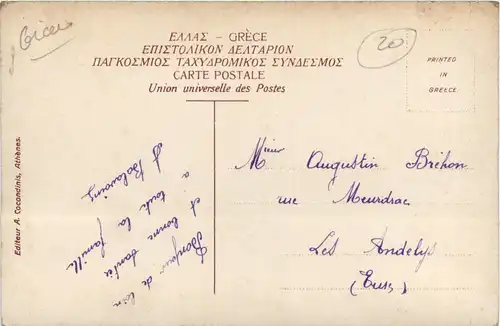 Grèce
20
ΕΛΛΑΣ – GRÈCE
ΕΠΙΣΤΟΛΙΚΟΝ ΔΕΛΤΑΡΙΟΝ
ΠΑΓΚΟΣΜΙΟΣ ΤΑΧΥΔΡΟΜΙΚΟΣ ΣΥΝΔΕΣΜΟΣ
CARTE POSTALE
Union universelle des Postes
PRINTED
IN
GREECE
Editeur A. Cacandinis, Athènes.
Bonjour de loin
et bonne santée
à toute la famille
Mʳ Augustin Bréhon
rue Meurdrac
Les Andelys
(Eure)